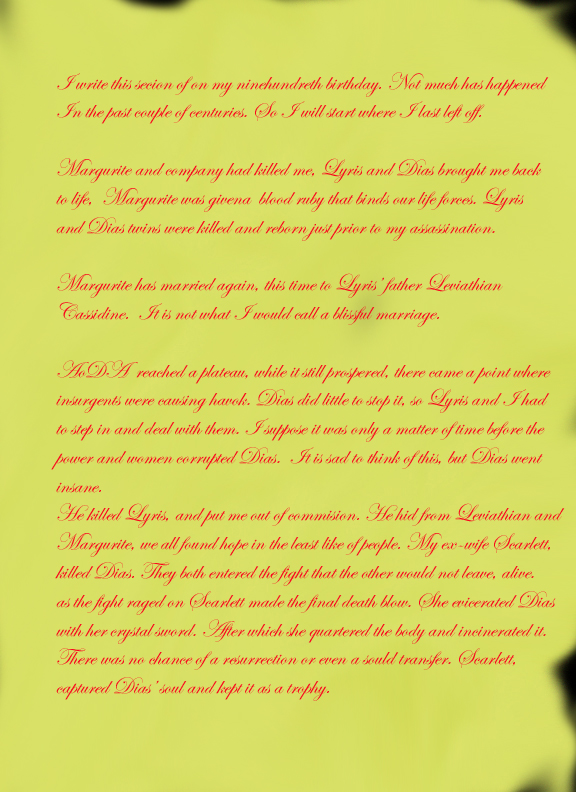 I write this secion of on my ninehundreth birthday. Not much has happened
In the past couple of centuries. So I will start where I last left off.
Margurite and company had killed me, Lyris and Dias brought me back
to life. Margurite was givena blood ruby that binds our life forces. Lyris
and Dias twins were killed and reborn just prior to my assassination.
Margurite has married again, this time to Lyris' father Leviathian
Cassidine. It is not what I would call a blissful marriage.
AoDA reached a plateau, while it still prospered, there came a point where
insurgents were causing havok. Dias did little to stop it, so Lyris and I had
to step in and deal with them. I suppose it was only a matter of time before the
power and women corrupted Dias. It is sad to think of this, but Dias went
insane.
He killed Lyris, and put me out of commision. He hid from Leviathian and
Margurite, we all found hope in the least like of people. My ex-wife Scarlett,
killed Dias. They both entered the fight that the other would not leave, alive.
as the fight raged on Scarlett made the final death blow. She evicerated Dias
with her crystal sword. After which she quartered the body and incinerated it.
There was no chance of a resurrection or even a sould transfer. Scarlett,
captured Dias' soul and kept it as a trophy.